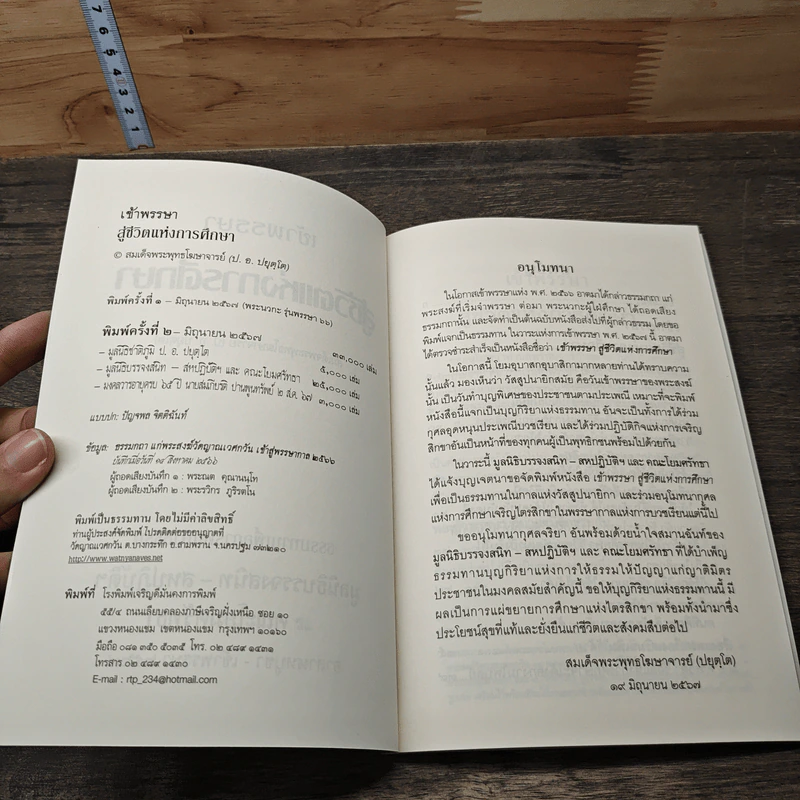 7 6 5 4 3 2 1
เข้าพรรษา
สู่ชีวิตแห่งการศึกษา
© สมเด็จพระพุทธโฆษาจารย์ (ป. อ. ปยุตฺโต)
พิมพ์ครั้งที่ ๑ – มิถุนายน ๒๕๖๗ (พระนวกะ รุ่นพรรษา ๖๖)
พิมพ์ครั้งที่ ๒ – มิถุนายน ๒๕๖๗ ๓๓,๐๐๐ เล่ม
- มูลนิธิชาติภูมิ ป. อ. ปยุตฺโต ๕,๐๐๐ เล่ม
- มูลนิธิบรรจงสนิท – สหปฏิบัติฯ และ คณะโยมศรัทธา ๒๕,๐๐๐ เล่ม
- มงคลวารอายุครบ ๖๕ ปี นายสมเกียรติ ปานพูนทรัพย์ ๒ ส.ค. ๖๗ ๓,๐๐๐ เล่ม
แบบปก: ปัญจพล จิตตินันท์
ข้อมูล: ธรรมกถา แก่พระสงฆ์วัดญาณเวศกวัน เข้าสู่พรรษากาล ๒๕๖๖
บันทึกเมื่อวันที่ ๓๙ สิงหาคม ๒๕๖๖
ผู้ถอดเสียงบันทึก ๑ : พระณต คุณานนฺโท
ผู้ถอดเสียงบันทึก ๒ : พระวริกร ภูริรตโน
พิมพ์เป็นธรรมทาน โดยไม่มีค่าลิขสิทธิ์
ท่านผู้ประสงค์จัดพิมพ์ โปรดติดต่อขออนุญาตที่
วัดญาณเวศกวัน ต.บางกระทึก อ.สามพราน จ.นครปฐม ๗๓๒๑๐
http://www.watnyanaves.net
พิมพ์ที่ โรงพิมพ์เจริญดีมั่นคงการพิมพ์
๕๕/๔ ถนนเลียบคลองภาษีเจริญฝั่งเหนือ ซอย ๑๐
แขวงหนองแขม เขตหนองแขม กรุงเทพฯ ๑๐๑๖๐
มือถือ ๐๘๑ ๓๕๐ ๕๓๔๕ โทร. ๐๒ ๔๘๙ ๑๔๓๑
โทรสาร ๐๒ ๔๘๙ ๑๔๓๐
E-mail : rtp_234@hotmail.com
อนุโมทนา
ในโอกาสเข้าพรรษาแห่ง พ.ศ. ๒๕๖๖ อาตมาได้กล่าวธรรมกถา แก่
พระสงฆ์ที่เริ่มจำพรรษา ต่อมา พระนวกะผู้ใฝ่ศึกษา ได้ถอดเสียง
ธรรมกถานั้น และจัดทำเป็นต้นฉบับหนังสือส่งไปที่ผู้กล่าวธรรม โดยขอ
พิมพ์แจกเป็นธรรมทาน ในวาระแห่งการเข้าพรรษา พ.ศ. ๒๕๖๗ นี้ อาตมา
ได้ตรวจชำระสำเร็จเป็นหนังสือชื่อว่า เข้าพรรษา สู่ชีวิตแห่งการศึกษา
ในโอกาสนี้ โยมอุบาสกอุบาสิกามากหลายท่านได้ทราบความ
นั้นแล้ว มองเห็นว่า วัสสูปนายิกสมัย คือวันเข้าพรรษาของพระสงฆ์
นั้น เป็นวันทำบุญพิเศษของประชาชนตามประเพณี เหมาะที่จะพิมพ์
หนังสือนี้แจกเป็นบุญกิริยาแห่งธรรมทาน อันจะเป็นทั้งการได้ร่วม
กุศลอุดหนุนประเพณีบวชเรียน และได้ร่วมปฏิบัติกิจแห่งการเจริญ
สิกขาอันเป็นหน้าที่ของทุกคนผู้เป็นพุทธิกชนพร้อมไปด้วยกัน
ในวาระนี้ มูลนิธิบรรจงสนิท – สหปฏิบัติฯ และ คณะโยมศรัทธา
ได้แจ้งบุญเจตนาขอจัดพิมพ์หนังสือ เข้าพรรษา สู่ชีวิตแห่งการศึกษา
เพื่อเป็นธรรมทานในกาลแห่งวัสสูปนายิกา และร่วมอนุโมทนากุศล
แห่งการศึกษาเจริญไตรสิกขาในพรรษากาลแห่งการบวชเรียนแต่นี้ไป
ขออนุโมทนากุศลจริยา อันพร้อมด้วยน้ำใจสมานฉันท์ของ
มูลนิธิบรรจงสนิท – สหปฏิบัติฯ และ คณะโยมศรัทธา ที่ได้บำเพ็ญ
ธรรมทานบุญกิริยาแห่งการให้ธรรมให้ปัญญาแก่ญาติมิตร
ประชาชนในมงคลสมัยสำคัญนี้ ขอให้บุญกิริยาแห่งธรรมทานนี้ มี
ผลเป็นการแผ่ขยายการศึกษาแห่งไตรสิกขา พร้อมทั้งนำมาซึ่ง
ประโยชน์สุขที่แท้และยั่งยืนแก่ชีวิตและสังคมสืบต่อไป
สมเด็จพระพุทธโฆษาจารย์ (ปยุตฺโต)
๑๙ มิถุนายน ๒๕๖๗